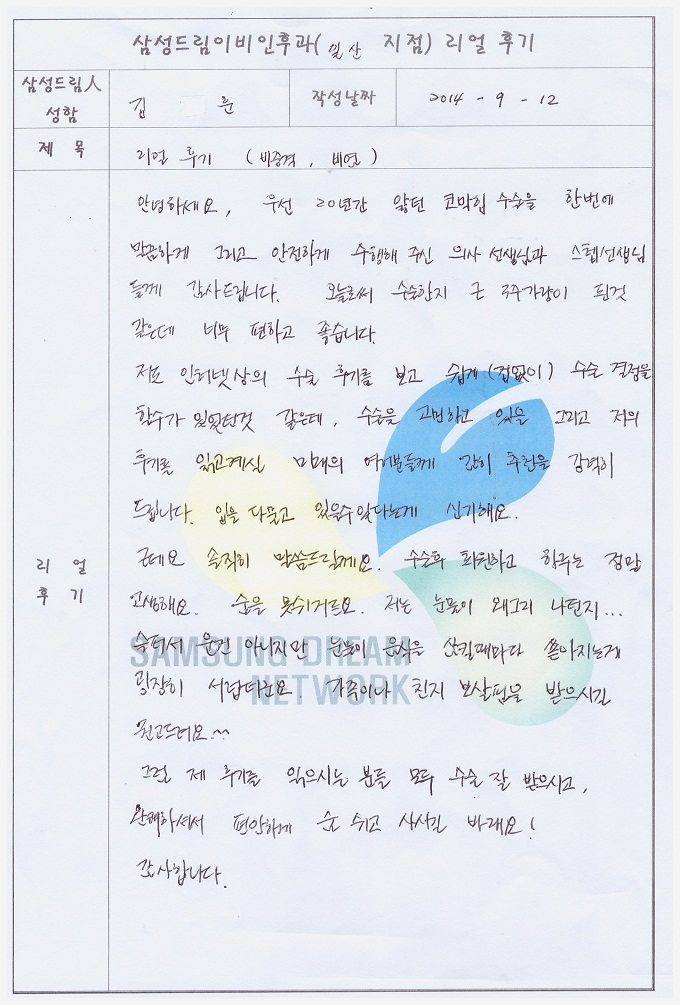 삼성드림이비인후과(일산 지점) 리얼 후기
삼성드림人 성함
김 훈
작성날짜
2014 - 9 - 12
제 목
리얼 후기 (비중격, 비염)
리 얼 후 기
안녕하세요, 우선 20년간 앓던 코막힘 수술을 한번에
말끔하게 그리고 안전하게 수행해 주신 의사 선생님과 스텝선생님
들께 감사드립니다. 오늘로써 수술한지 근 2주가량이 된것
같은데 너무 편하고 좋습니다.
저도 인터넷상의 수술 후기를 보고 쉽게 (겁없이) 수술 결정을
할수가 있었던것 같은데, 수술을 고민하고 있을 그리고 저의
후기를 읽고계실 미래의 여러분들께 감히 추천을 강력히
드립니다. 입을 다물고 있을수 있다는게 신기해요.
근데요 솔직히 말씀드릴께요. 수술후 퇴원하고 한주는 정말
고생해요. 숨을 못쉬거든요. 저는 눈물이 왜그리 나던지...
슬퍼서 운건 아니지만 눈물이 음식을 삼킬때마다 쏟아지는게
굉장히 서럽더군요. 가족이나 친지 보살핌을 받으시길
권고드려요~~
그럼 제 후기를 읽으시는 분들 모두 수술 잘 받으시고,
완쾌하셔서 편안하게 숨 쉬고 사시길 바래요!
감사합니다.
SAMSUNG DREAM
NETWORK